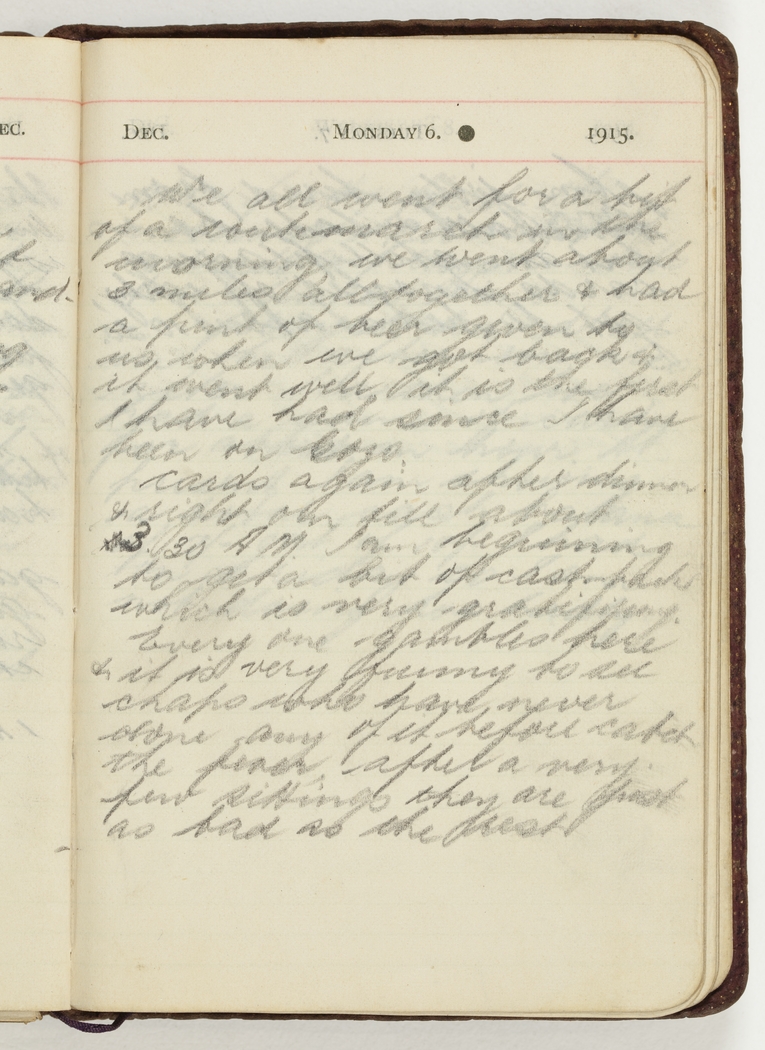 EC.
DEC. MONDAY 6. 1915.
We all went for a bit
of a route march in the
morning, we went about
3 miles all together & had
a pint of beer given to
us when we got back &
it went well it is the first
I have had since I have
been on
cards again after dinner
& right on till about
3.30 A M. I am beginning
to get a bit of cash back
which is very gratifying.
Every one gambles here
& it is very funny to see
chaps who have never
done any of it before catch
the fever, after a very
few sittings they are just
as bad as the rest